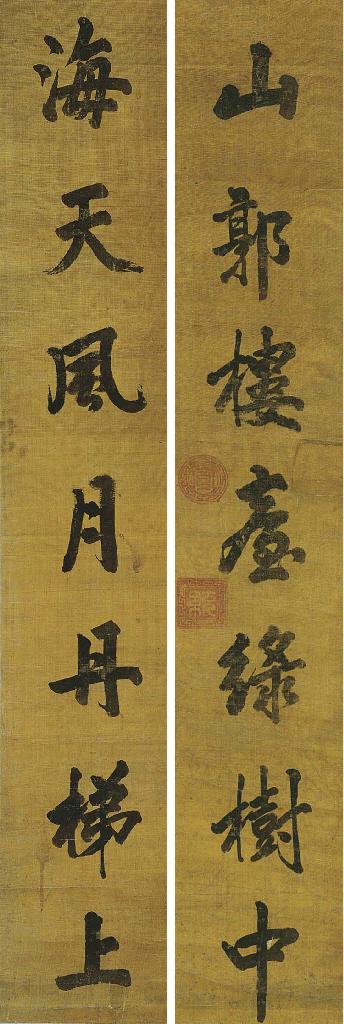 山郭樓臺綠樹中
海天風月丹梯上